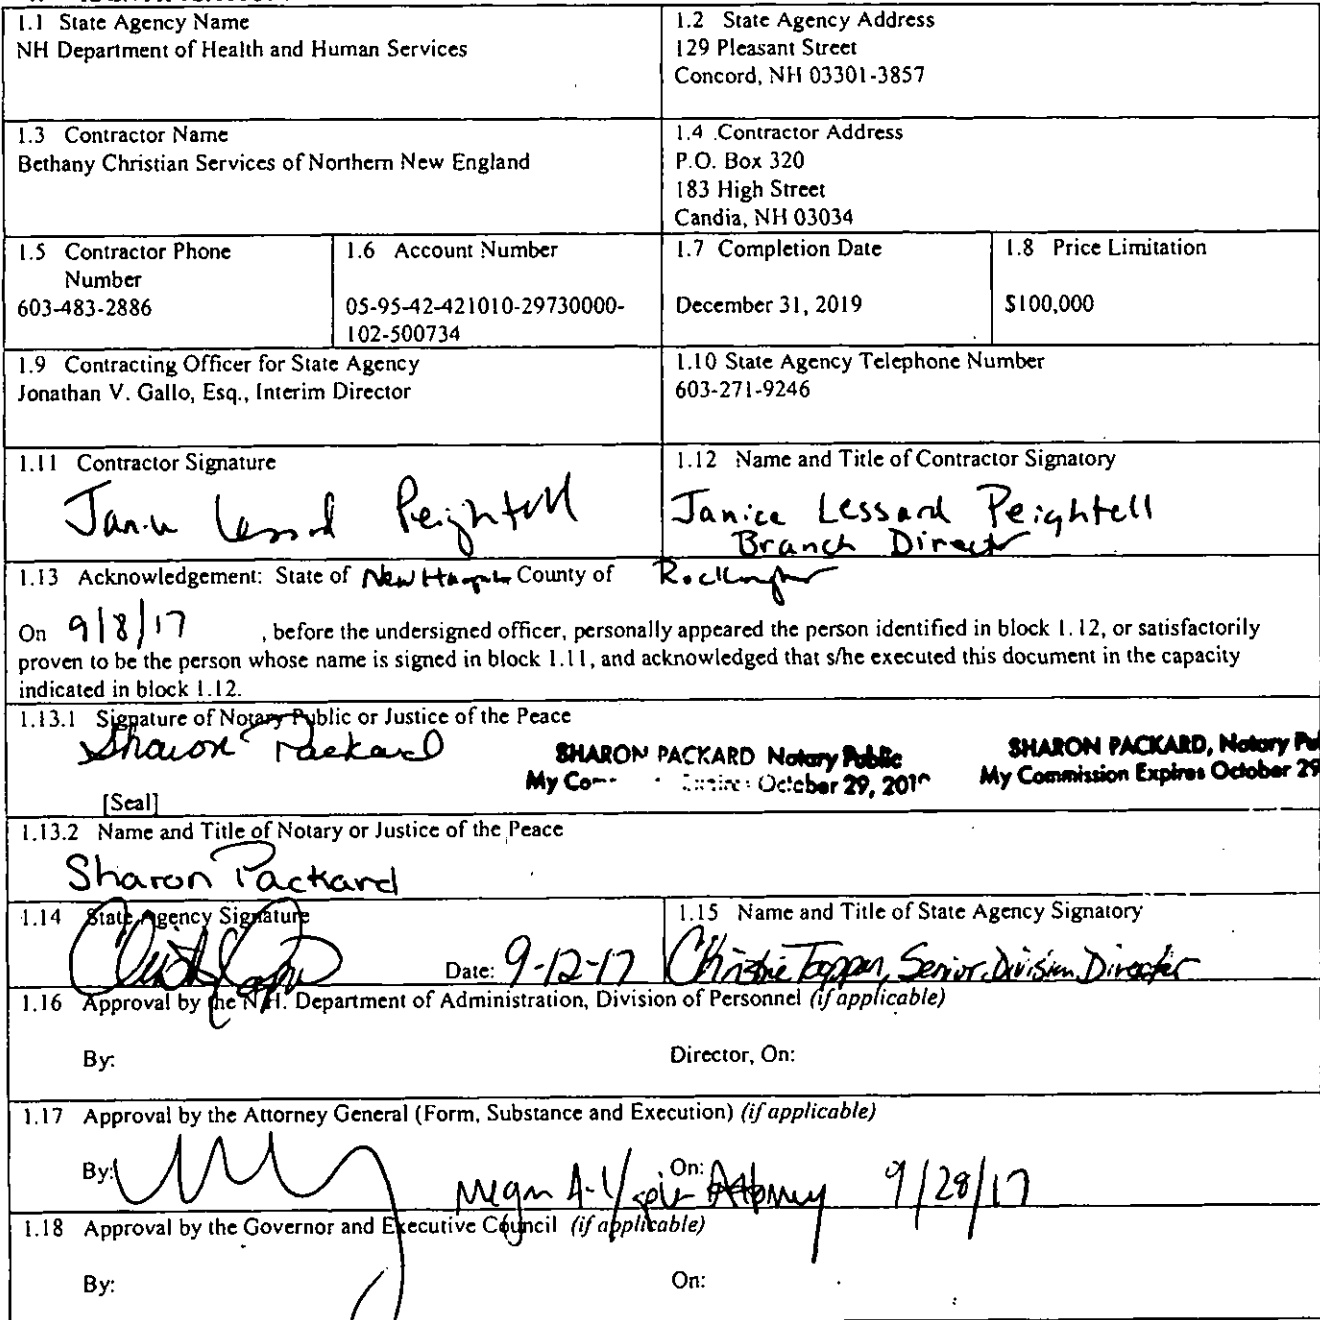 1.1 State Agency Name
NH Department of Health and Human Services
1.2 State Agency Address
129 Pleasant Street
Concord, NH 03301-3857
1.3 Contractor Name
Bethany Christian Services of Northern New England
1.4 Contractor Address
P.O. Box 320
183 High Street
Candia, NH 03034
1.5 Contractor Phone
Number
603-483-2886
1.6 Account Number
05-95-42-421010-29730000-
102-500734
1.7 Completion Date
December 31, 2019
1.8 Price Limitation
$100,000
1.9 Contracting Officer for State Agency
Jonathan V. Gallo, Esq., Interim Director
1.10 State Agency Telephone Number
603-271-9246
1.11 Contractor Signature
Janice Lessard Peightell
1.12 Name and Title of Contractor Signatory
Janice Lessard Peightell
Branch Director
1.13 Acknowledgement: State of New Hampshire County of Rockingham
On 9/8/17 , before the undersigned officer, personally appeared the person identified in block 1.12, or satisfactorily
proven to be the person whose name is signed in block 1.11, and acknowledged that s/he executed this document in the capacity
indicated in block 1.12.
1.13.1 Signature of Notary Public or Justice of the Peace
Sharon Packard
SHARON PACKARD Notary Public
My October 29,
SHARON PACKARD, Notary
My Commission Expires October 29
[Seal]
1.13.2 Name and Title of Notary or Justice of the Peace
Sharon Packard
1.14 State Agency Signature
Date: 9-12-17
1.15 Name and Title of State Agency Signatory
Christie Tappan, Senior Division Director
1.16 Approval by the N.H. Department of Administration, Division of Personnel (if applicable)
By:
Director, On:
1.17 Approval by the Attorney General (Form, Substance and Execution) (if applicable)
By:
On:
Attorney 9/28/17
1.18 Approval by the Governor and Executive Council (if applicable)
By:
On: